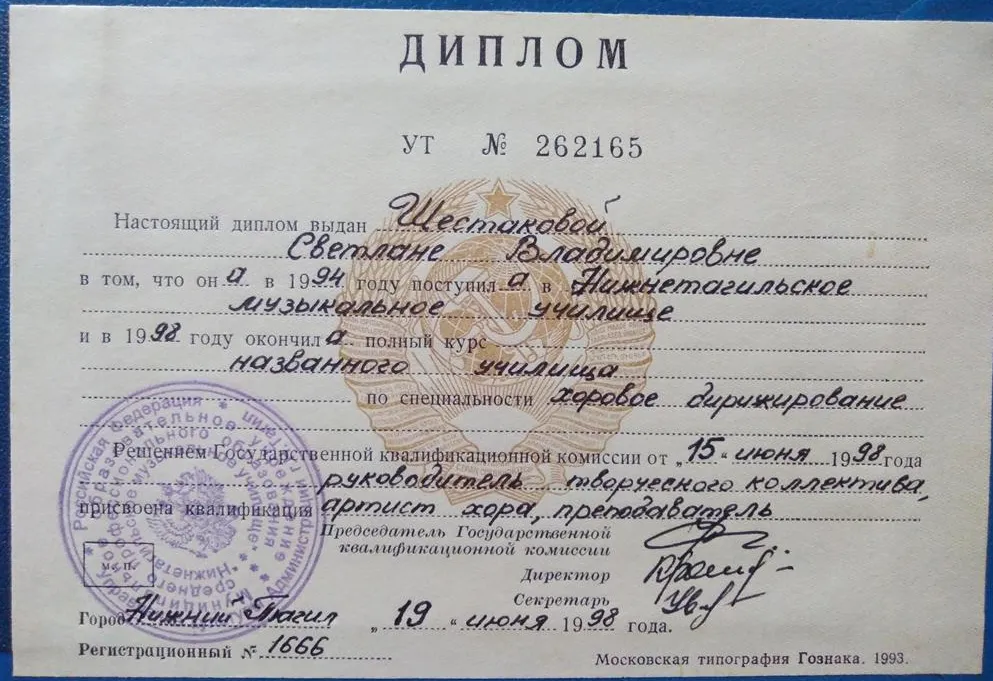 ДИПЛОМ
УТ № 262165
Настоящий диплом выдан Шестаковой
Светлане Владимировне
в том, что он а в 1994 году поступил а в Нижнетагильское
музыкальное училище
и в 1998 году окончил а полный курс
названного училища
по специальности хоровое дирижирование
Решением Государственной квалификационной комиссии от „15“ июня 1998 года
руководитель творческого коллектива,
присвоена квалификация артист хора, преподаватель
Председатель Государственной
квалификационной комиссии
Директор
Секретарь
м. п.
Город Нижний Тагил „19“ июня 1998 года.
Регистрационный № 1666
Московская типография Гознака. 1993.
Российская Федерация
образовательное учреждение
среднего профессионального образования